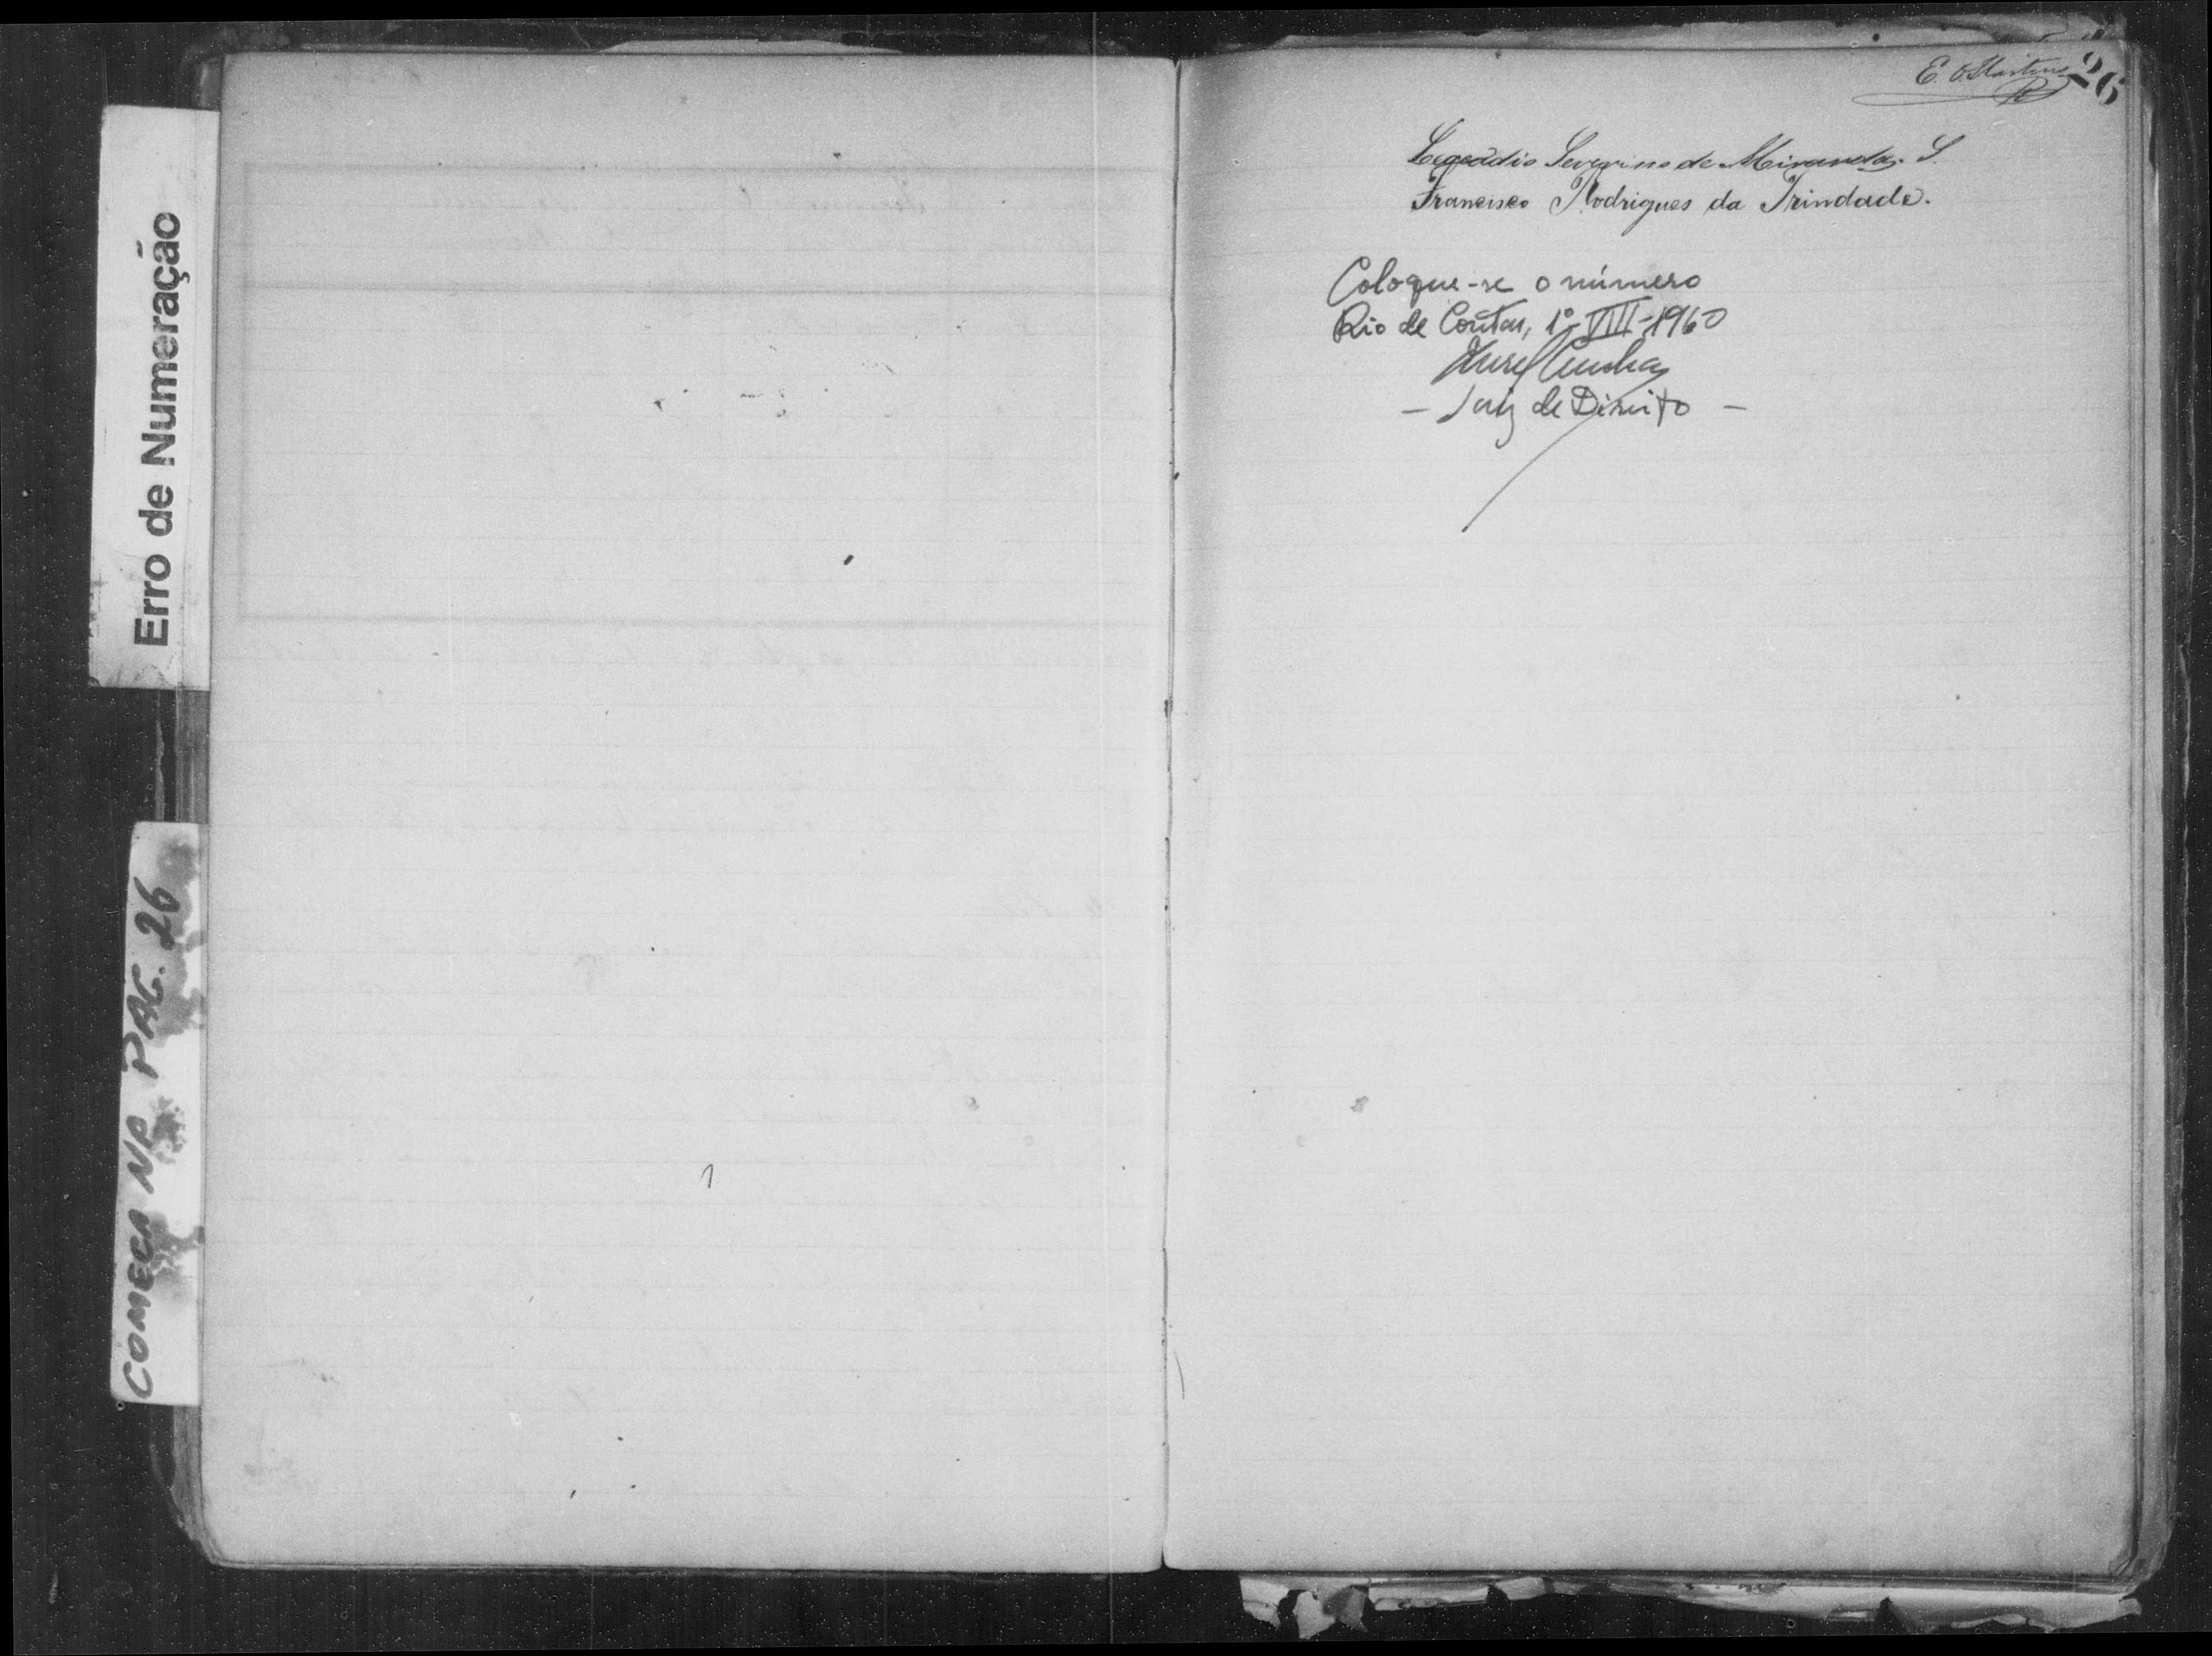 Erro de Numeração
COMEÇA NA PAG. 26
E. O Martins
26
Leocadio Severino de Miranda. S.
Francisco Rodrigues da Trindade.
Coloque-se o número
Rio de Contas, 1º-VIII-1960
Cunha
- Juiz de Direito -